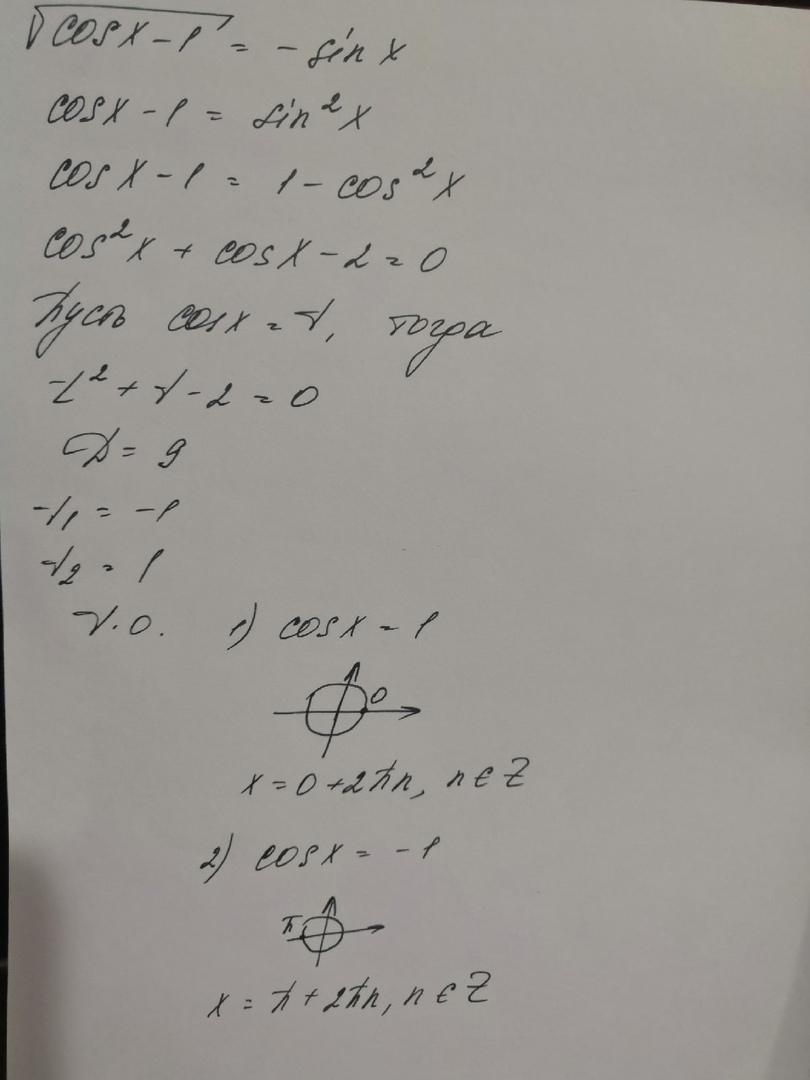 √(cos x - 1) = - sin x
cos x - 1 = sin² x
cos x - 1 = 1 - cos² x
cos² x + cos x - 2 = 0
Пусть cos x = t, тогда
t² + t - 2 = 0
D = 9
t₁ = -1
t₂ = 1
т.о. 1) cos x = 1
0
x = 0 + 2πn, n ∈ Z
2) cos x = -1
π
x = π + 2πn, n ∈ Z